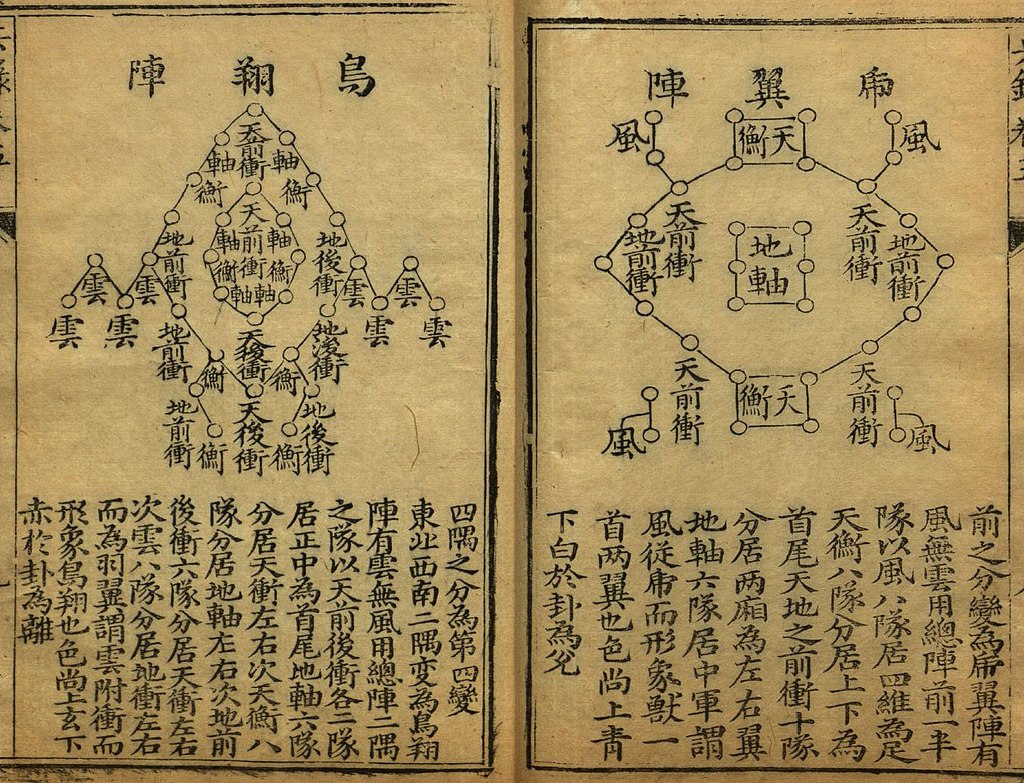 乕翼陣
風
天衡
風
天前衝
天前衝
地前衝
地軸
地前衝
天前衝
天前衝
風
天衡
風
前之分變為乕翼陣有
風無雲用總陣前一半
隊以風八隊居四維為足
天衡八隊分居上下為
首尾天地之前衝十隊
分居两廂為左右翼
地軸六隊居中軍謂
風従乕而形象獸一
首两翼也色尚上青
下白於卦為兊
鳥翔陣
天前衝
軸
軸
衡
衡
天前衝
軸
軸
衡
衡
軸
軸
地後衝
地前衝
雲
雲
雲
雲
雲
雲
雲
雲
地後衝
天後衝
地前衝
衡
衡
地後衝
天後衝
地前衝
衡
衡
四隅之分為第四變
東北西南二隅変為鳥翔
陣有雲無風用總陣二隅
之隊以天前後衝各二隊
居正中為首尾地軸六隊
分居天衝左右次天衡八
隊分居地軸左右次地前
後衝六隊分居天衝左右
次雲八隊分居地衝左右
而為羽翼謂雲附衝而
形象鳥翔也色尚上玄下
赤於卦為離